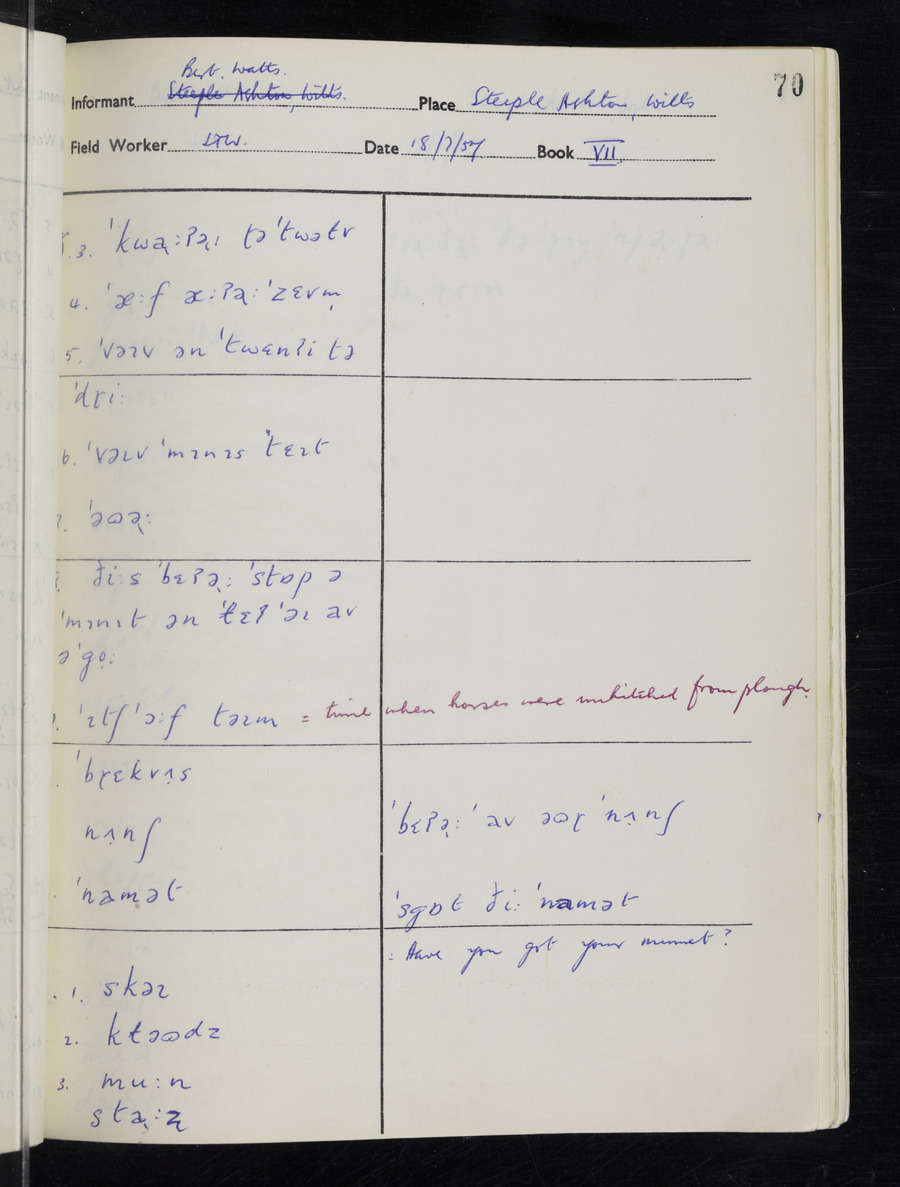 70
Bert. Watts.
Informant Steeple Ashton, Wilts. Place Steeple Ashton, Wilts
Field Worker Date 18/7/57 Book VII
3. ˈkwəɻːʔəɻ təˈtwətv
4. ˈæːf æːʔəɻːˈzɛvm̩
5. ˈvəɪv ən ˈtwɛnʔi tə
ˈdɽiː
6. ˈvəɪv ˈmɪnɪs ˈtɛɪt
ˈəɷəɻː
ðiːs ˈbɛʔəɻː ˈstɒp ə
ˈmɪnɪt ən ˈɫɛʔ ˈəɪ av
əˈgo̜ː
ˈɪtʃ ˈɔːf təɪm = time when horses were unhitched from plough.
ˈbɽɛkvʌs
nʌnʃ ˈbɛʔəɻː ˈav əɷɽ ˈnʌnʃ
ˈnamət ˈsgɒt ðiː ˈnamət
: Have you got your nummet?
1. skəɪ
2. kɫəɷdz
3. muːn
staɻːz